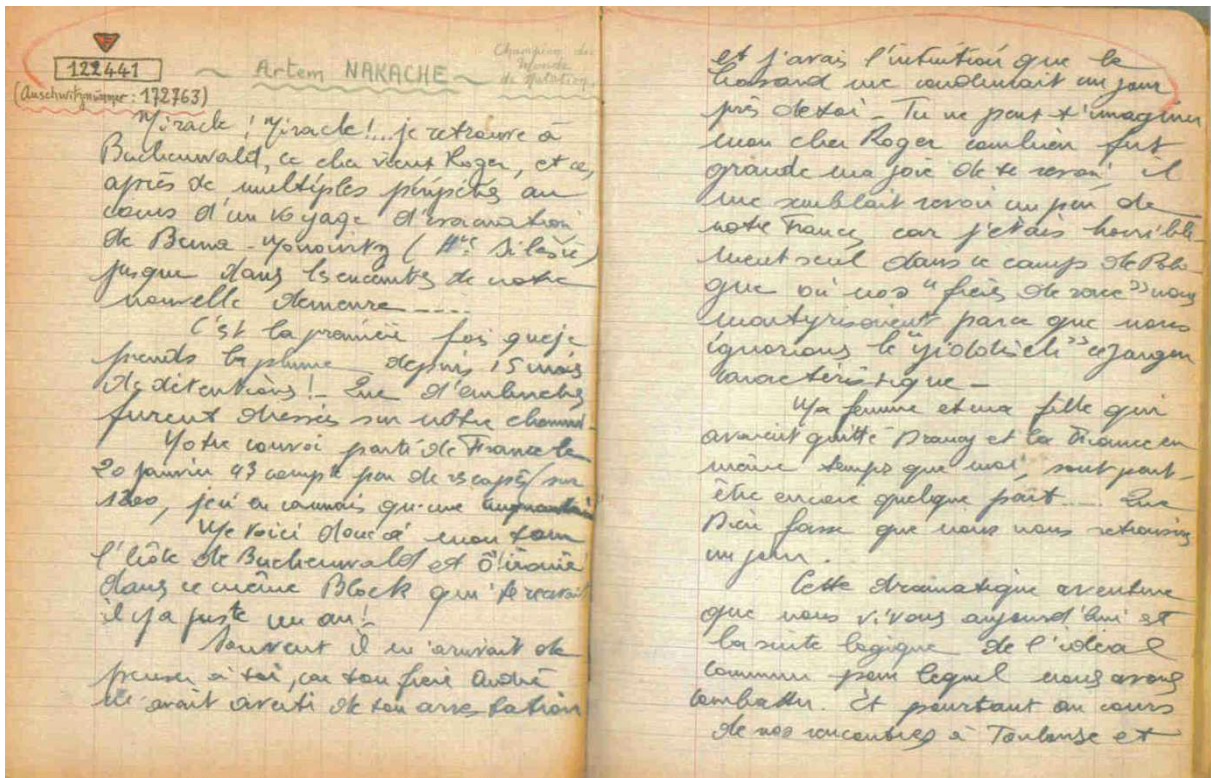 122441
(Auschwitznummer: 172763)
~ Artem NAKACHE ~
Champion du
Monde
de Natation
Miracle ! Miracle !... je retrouve à
Buchenwald, ce cher vieux Roger, et ce,
après de multiples péripéties au
cours d'un voyage d'évacuation
de Buna-Monowitz (Hte Silésie)
jusque dans les enceintes de notre
nouvelle demeure ....
C'est la première fois que je
prends la plume depuis 15 mois
de détentions ! - Que d'embuches
furent dressées sur notre chemin -
Notre convoi parti de France le
20 janvier 43 compte peu de rescapés/ sur
1200, j'en connais qu'une
Me voici donc à mon tour
l'hôte de Buchenwald et ô ironie
dans ce même Block qui te recevait
il y a juste un an !
Souvent il m'arrivait de
penser à toi, car ton frère André
m'avait averti de ton arrestation
et j'avais l'intuition que le
hasard me conduirait un jour
près de toi - Tu ne peut t'imaginer
mon cher Roger combien fut
grande ma joie de te revoir, il
me semblait revoir un peu de
notre France, car j'étais horrible-
ment seul dans ce camp de Polo-
gne où nos "frères de race" nous
martyrisaient parce que nous
ignorions le "yiddisch" ce jargon
caractéristique -
Ma femme et ma fille qui
avaient quitté Drancy et la France en
même temps que moi, sont peut-
être encore quelque part .... Que
Dieu fasse que nous nous retrouvions
un jour.
Cette dramatique aventure
que nous vivons aujourd'hui est
la suite logique de l'idéal
commun pour lequel nous avons
combattu. Et pourtant au cours
de nos rencontres à Toulouse et